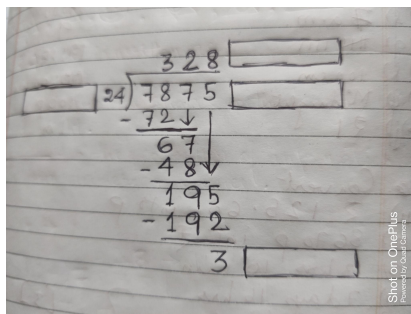 328
24)7875
-72↓
67
-48
195
-192
3
Shot on OnePlus
Powered by Quad Camera